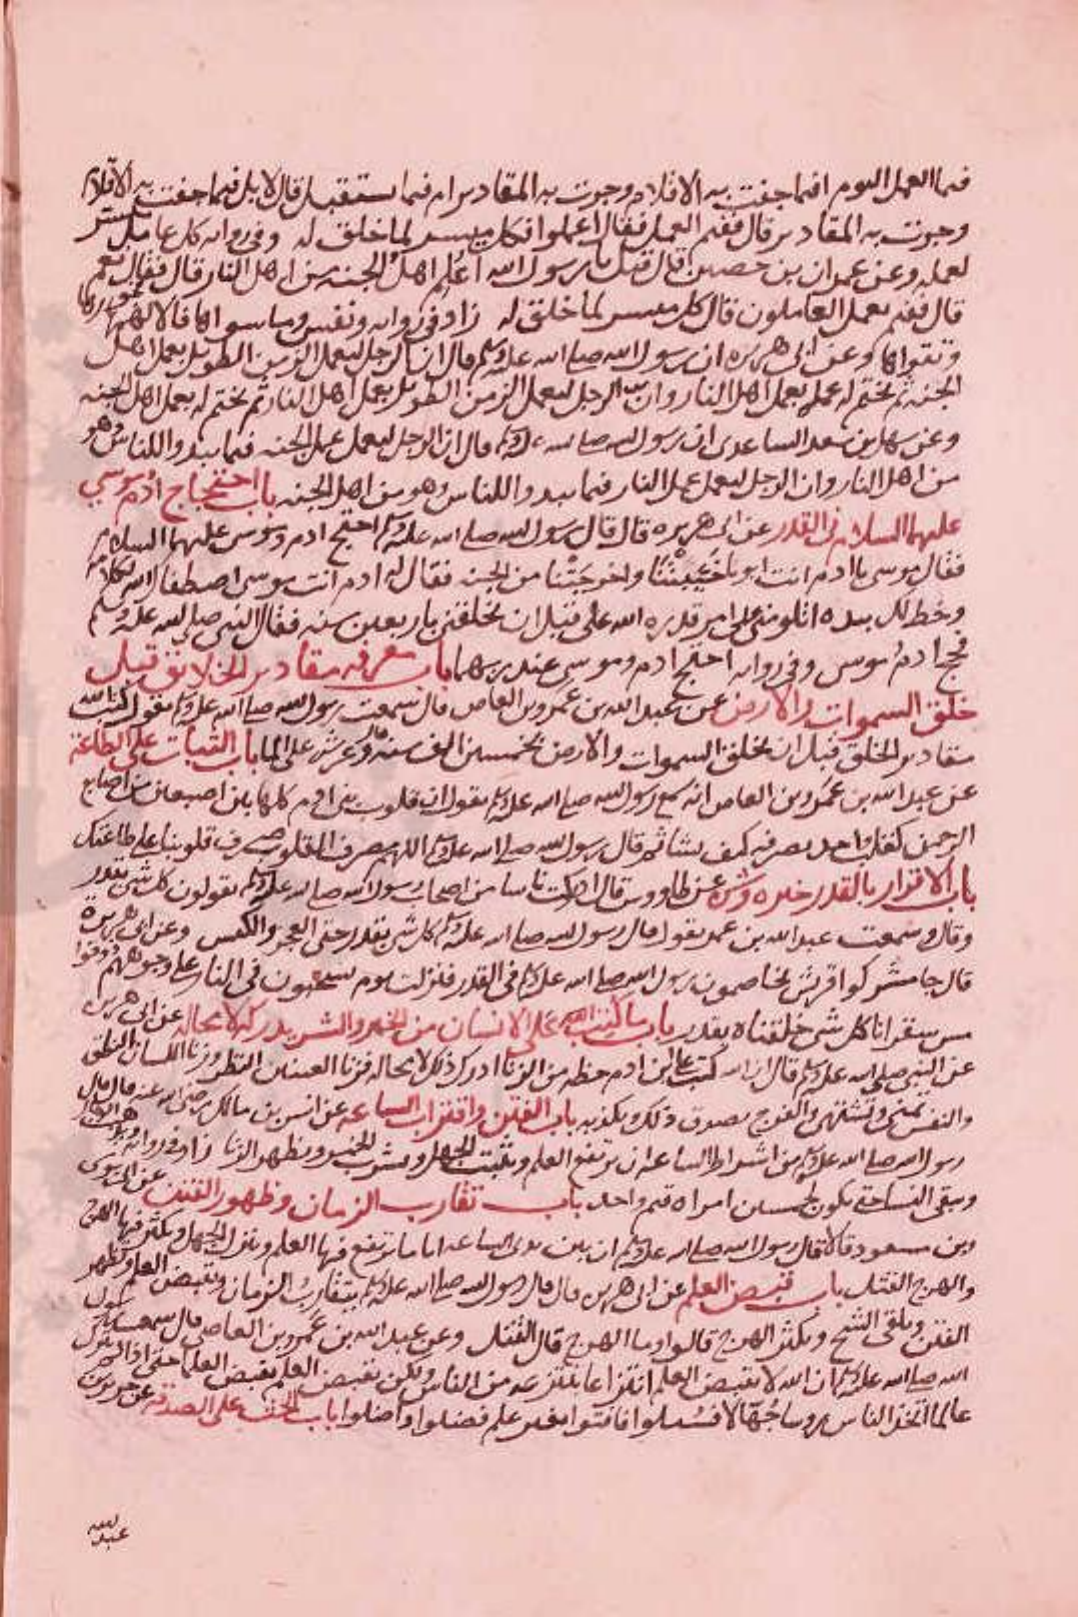 فيما العمل اليوم افيما جفت به الاقلام وجرت به المقادير ام فيما يستقبل قال لا بل فيما جفت به الاقلام
وجرت به المقادير قال ففيم العمل فقال اعملوا فكل ميسر لما خلق له وفي رواية كل عامل ميسر
لعمله وعن عمران بن حصين قال قيل يا رسول الله اعلم اهل الجنه من اهل النار قال فقال نعم
قال ففيم يعمل العاملون قال كل ميسر لما خلق له زاد في رواية ونفس وما سواها فالهمها فجورها
وتقواها وعن ابي هريره ان رسول الله صلى الله عليه وسلم قال ان الرجل ليعمل الزمن الطويل بعمل اهل
الجنه ثم يختم له عمله بعمل اهل النار وان الرجل ليعمل الزمن الطويل بعمل اهل النار ثم يختم له بعمل اهل الجنه
وعن سهل بن سعد الساعدي ان رسول الله صلى الله عليه وسلم قال ان الرجل ليعمل عمل الجنه فيما يبدو اللناس وهو
من اهل النار وان الرجل ليعمل عمل النار فيما يبدو اللناس وهو من اهل الجنه باب احتجاج ادم وموسي
عليهما السلام في القدر عن ابي هريره قال قال رسول الله صلى الله عليه وسلم احتج ادم وموسى عليهما السلام
فقال موسى يا ادم انت ابونا خيبتنا واخرجتنا من الجنه فقال له ادم انت موسى اصطفاك الله بكلامه
وخط لك بيده اتلومني على امر قدره الله علي قبل ان يخلقني باربعين سنه فقال النبي صلى الله عليه وسلم
فحج ادم موسى وفي رواية احتج ادم وموسى عند ربهما باب معرفه مقادير الخلائق قبل
خلق السموات والارض عن عبد الله بن عمرو بن العاص قال سمعت رسول الله صلى الله عليه وسلم يقول كتب الله
مقادير الخلق قبل ان يخلق السموات والارض بخمسين الف سنه قال وعرشه على الما باب الثبات على الطاعة
عن عبد الله بن عمرو بن العاص انه سمع رسول الله صلى الله عليه وسلم يقول ان قلوب بني ادم كلها بين اصبعين من اصابع
الرحمن كقلب واحد يصرفه كيف يشا ثم قال رسول الله صلى الله عليه وسلم اللهم مصرف القلوب صرف قلوبنا على طاعتك
باب الاقرار بالقدر خيره وشره عن طاووس قال ادركت ناسا من اصحاب رسول الله صلى الله عليه وسلم يقولون كل شي بقدر
وقال وسمعت عبد الله بن عمر يقول قال رسول الله صلى الله عليه وسلم كل شي بقدر حتى العجز والكيس وعن ابي هريرة
قال جا مشركوا قريش يخاصمون رسول الله صلى الله عليه وسلم في القدر فنزلت يوم يسحبون في النار على وجوههم ذوقوا
مس سقر انا كل شي خلقناه بقدر باب ما كتب الله على الانسان من الخير والشر يدركه لا محاله عن ابي هريره
عن النبي صلى الله عليه وسلم قال ان الله كتب على ابن ادم حظه من الزنا ادرك ذلك لا محاله فزنا العينين النظر وزنا اللسان النطق
والنفس تمنى وتشتهي والفرج يصدق ذلك ويكذبه باب الفتن واقتراب الساعه عن انس بن مالك رضي الله عنه قال قال
رسول الله صلى الله عليه وسلم من اشراط الساعه ان يرفع العلم ويثبت الجهل ويشرب الخمر ويظهر الزنا زاد في رواية ويذهب الرجال
ويبقى النسا حتى يكون لخمسين امراه قيم واحد باب تقارب الزمان وظهور الفتن عن ابي موسى
وبن مسعود قالا قال رسول الله صلى الله عليه وسلم ان بين يدي الساعه اياما يرفع فيها العلم وينزل الجهل ويكثر فيها الهرج
والهرج القتل باب قبض العلم عن ابي هريره قال قال رسول الله صلى الله عليه وسلم يتقارب الزمان ويقبض العلم وتظهر
الفتن ويلقى الشح ويكثر الهرج قالوا وما الهرج قال القتل وعن عبد الله بن عمرو بن العاص قال سمعت رسول
الله صلى الله عليه وسلم ان الله لا يقبض العلم انتزاعا ينتزعه من الناس ولكن يقبض العلم بقبض العلما حتى اذا لم يترك
عالما اتخذ الناس روسا جهالا فسئلوا فافتوا بغير علم فضلوا واضلوا باب الحث على الصدقه عن جرير بن
عبد الله